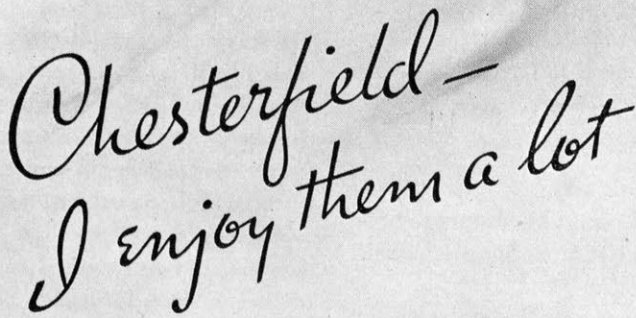 Chesterfield —
I enjoy them a lot